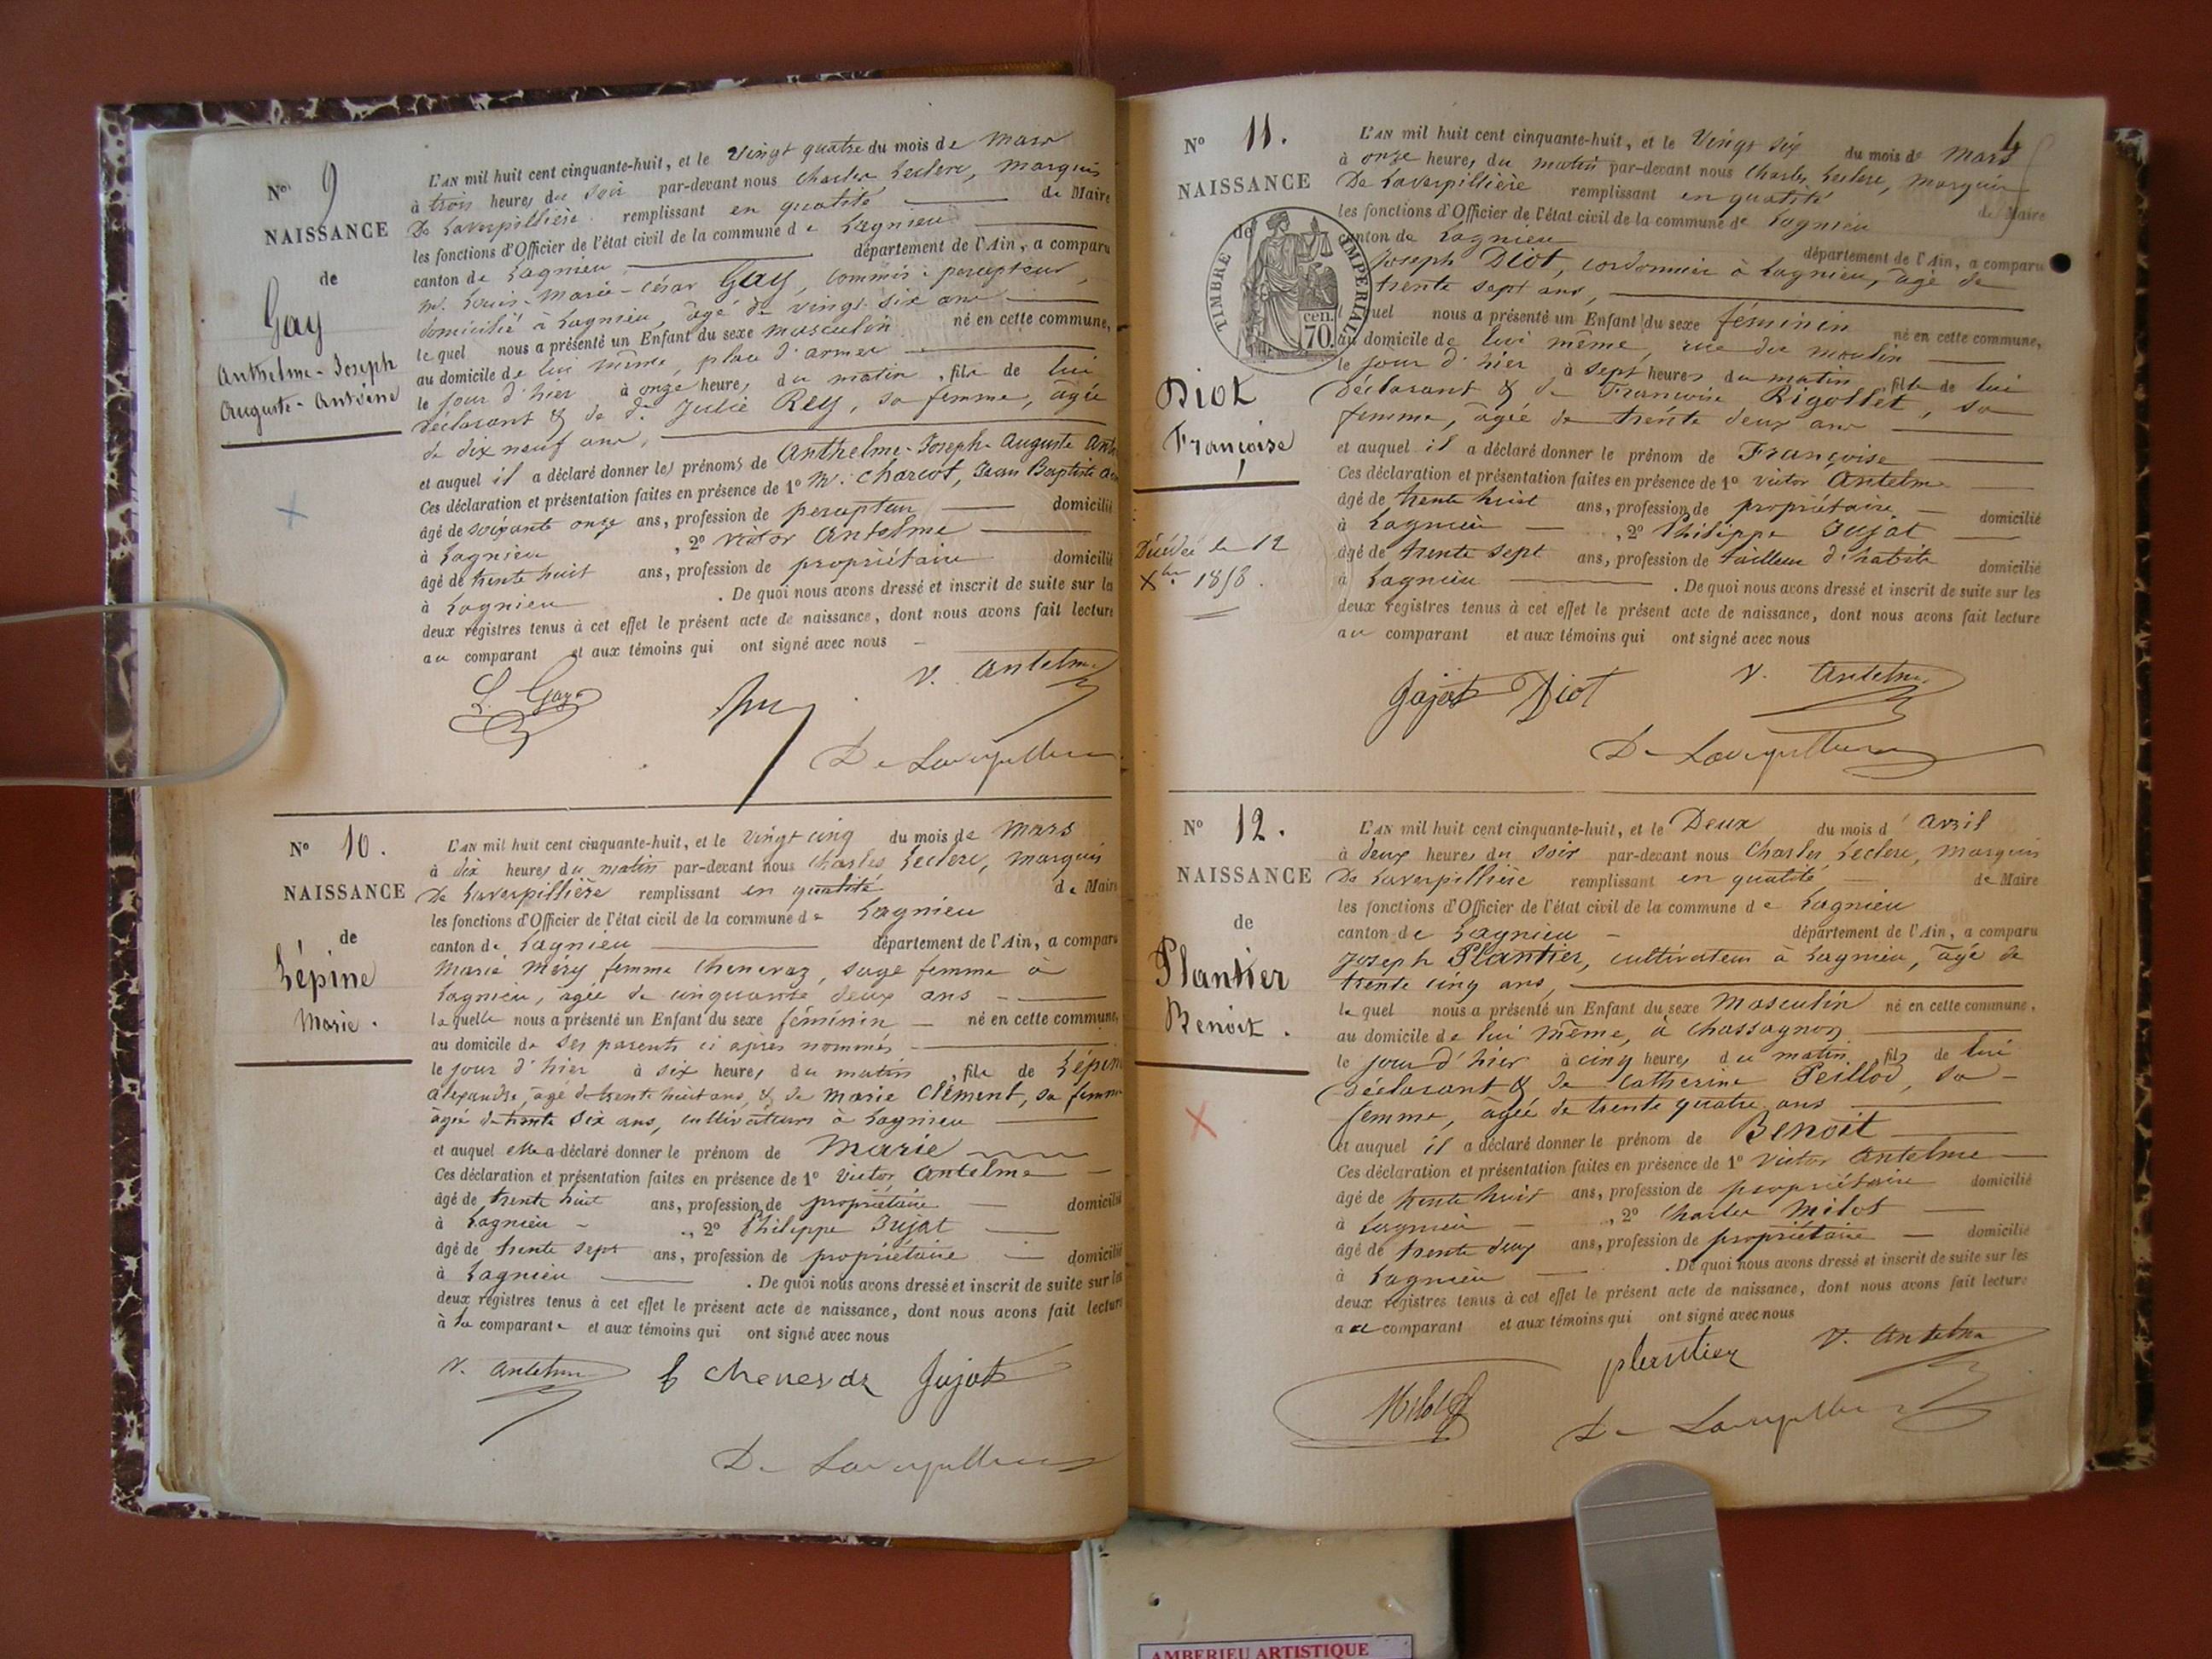 N° 9
NAISSANCE
de
Gay
Anthelme-Joseph
Auguste-Antoine
L'AN mil huit cent cinquante-huit, et le vingt quatre du mois de mars
à trois heures du soir par-devant nous Charles Leclerc, marquis
De Laverpillière remplissant en qualité de Maire
les fonctions d'Officier de l'état civil de la commune de Lagnieu
canton de Lagnieu département de l'Ain, a comparu
M. Louis-Marie-César Gay, commis-percepteur,
domicilié à Lagnieu, âgé de vingt-six ans
lequel nous a présenté un Enfant du sexe masculin né en cette commune,
au domicile de lui même, place d'armes
le jour d'hier à onze heures du matin, fils de lui
déclarant & de de Julie Rey, sa femme, âgée
de dix neuf ans,
et auquel il a déclaré donner les prénoms de Anthelme-Joseph-Auguste Ant
Ces déclaration et présentation faites en présence de 1° M. Charcot, Jean Baptiste
âgé de soixante onze ans, profession de percepteur domicilié
à Lagnieu, 2° Victor Antelme
âgé de trente huit ans, profession de propriétaire domicilié
à Lagnieu. De quoi nous avons dressé et inscrit de suite sur les
deux registres tenus à cet effet le présent acte de naissance, dont nous avons fait lecture
au comparant et aux témoins qui ont signé avec nous
L. Gay V. Antelme
De Laverpillière
N° 10.
NAISSANCE
de
Lépine
Marie.
L'AN mil huit cent cinquante-huit, et le vingt cinq du mois de mars
à dix heures du matin par-devant nous Charles Leclerc, marquis
De Laverpillière remplissant en qualité de Maire
les fonctions d'Officier de l'état civil de la commune de Lagnieu
canton de Lagnieu département de l'Ain, a comparu
Marie Méry femme Chenevaz, sage femme à
Lagnieu, âgée de cinquante deux ans
laquelle nous a présenté un Enfant du sexe féminin né en cette commune,
au domicile de ses parents ci après nommés
le jour d'hier à six heures du matin, fille de Lépine
Alexandre, âgé de trente huit ans, & de Marie Clément, sa femme
âgée de trente six ans, cultivateurs à Lagnieu
et auquel elle a déclaré donner le prénom de Marie
Ces déclaration et présentation faites en présence de 1° Victor Antelme
âgé de trente huit ans, profession de propriétaire domicilié
à Lagnieu, 2° Philippe Jujat
âgé de trente sept ans, profession de propriétaire domicilié
à Lagnieu. De quoi nous avons dressé et inscrit de suite sur les
deux registres tenus à cet effet le présent acte de naissance, dont nous avons fait lecture
à la comparante et aux témoins qui ont signé avec nous
V. Antelme f Chenevaz Jujat
De Laverpillière
4
N° 11.
NAISSANCE
de
TIMBRE IMPERIAL
70 cen.
Diot
Françoise
Décédée le 12
Xbre 1858.
L'AN mil huit cent cinquante-huit, et le Vingt six du mois de mars
à onze heures du matin par-devant nous Charles Leclerc, marquis
De Laverpillière remplissant en qualité de Maire
les fonctions d'Officier de l'état civil de la commune de Lagnieu
canton de Lagnieu département de l'Ain, a comparu
Joseph Diot, cordonnier à Lagnieu, âgé de
trente sept ans,
lequel nous a présenté un Enfant du sexe féminin né en cette commune,
au domicile de lui même, rue du moulin
le jour d'hier à sept heures du matin fille de lui
déclarant & de Françoise Rigollet, sa
femme, âgée de trente deux ans
et auquel il a déclaré donner le prénom de Françoise
Ces déclaration et présentation faites en présence de 1° Victor Antelme
âgé de trente huit ans, profession de propriétaire domicilié
à Lagnieu, 2° Philippe Jujat
âgé de trente sept ans, profession de tailleur d'habits domicilié
à Lagnieu. De quoi nous avons dressé et inscrit de suite sur les
deux registres tenus à cet effet le présent acte de naissance, dont nous avons fait lecture
au comparant et aux témoins qui ont signé avec nous
Jujat Diot V. Antelme
De Laverpillière
N° 12.
NAISSANCE
de
Plantier
Benoit.
L'AN mil huit cent cinquante-huit, et le Deux du mois d'avril
à deux heures du soir par-devant nous Charles Leclerc, marquis
De Laverpillière remplissant en qualité de Maire
les fonctions d'Officier de l'état civil de la commune de Lagnieu
canton de Lagnieu département de l'Ain, a comparu
Joseph Plantier, cultivateur à Lagnieu, âgé de
trente cinq ans,
lequel nous a présenté un Enfant du sexe Masculin né en cette commune,
au domicile de lui même, à Chassagnon
le jour d'hier à cinq heures du matin, fils de lui
déclarant & de Catherine Peillod, sa
femme, âgée de trente quatre ans
et auquel il a déclaré donner le prénom de Benoît
Ces déclaration et présentation faites en présence de 1° Victor Antelme
âgé de trente huit ans, profession de propriétaire domicilié
à Lagnieu, 2° Charles Milot
âgé de trente deux ans, profession de propriétaire domicilié
à Lagnieu. De quoi nous avons dressé et inscrit de suite sur les
deux registres tenus à cet effet le présent acte de naissance, dont nous avons fait lecture
au comparant et aux témoins qui ont signé avec nous
Milot plantier V. Antelme
De Laverpillière
AMBERIEU ARTISTIQUE